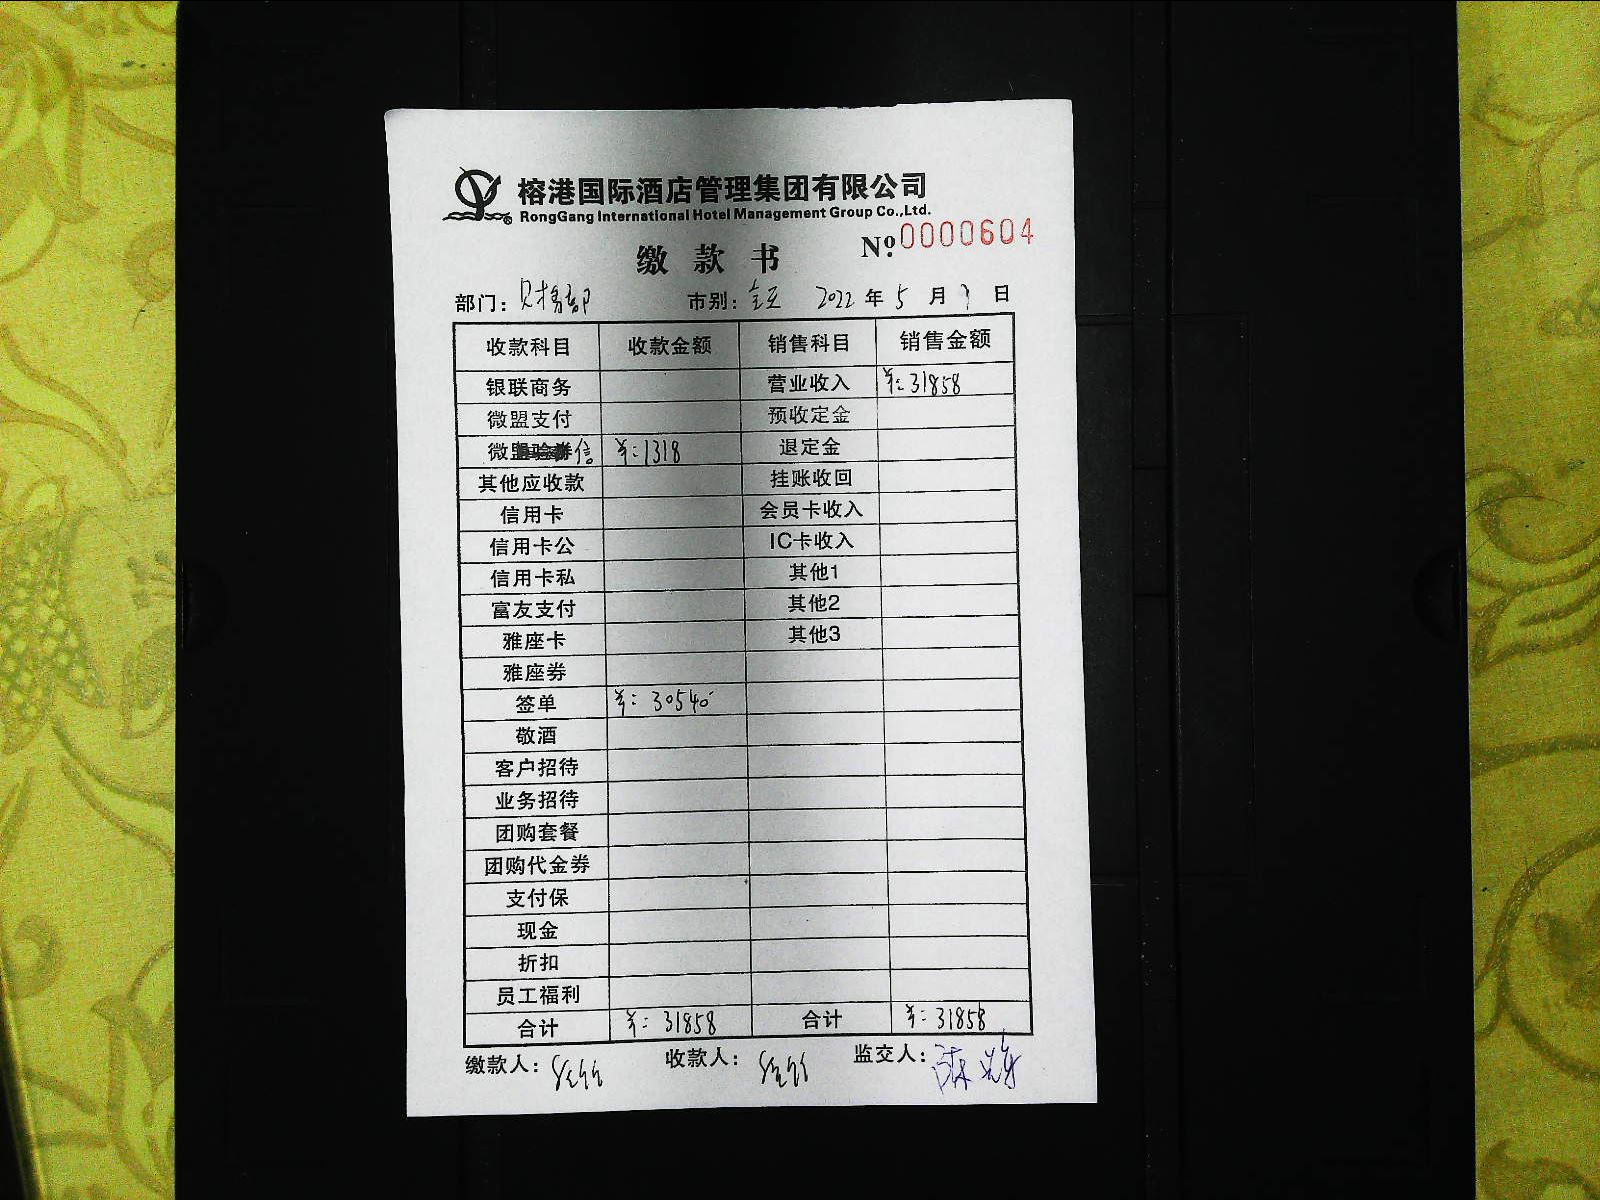 榕港国际酒店管理集团有限公司
RongGang International Hotel Management Group Co.,Ltd.
缴款书 Nº 0000604
部门：财务部 市别： 2022年5月 日
收款科目 收款金额 销售科目 销售金额
银联商务 营业收入 ¥：31858
微盟支付 预收定金
微信 ¥：1318 退定金
其他应收款 挂账收回
信用卡 会员卡收入
信用卡公 IC卡收入
信用卡私 其他1
富友支付 其他2
雅座卡 其他3
雅座券
签单 ¥：30540
敬酒
客户招待
业务招待
团购套餐
团购代金券
支付保
现金
折扣
员工福利
合计 ¥：31858 合计 ¥：31858
缴款人： 收款人： 监交人：